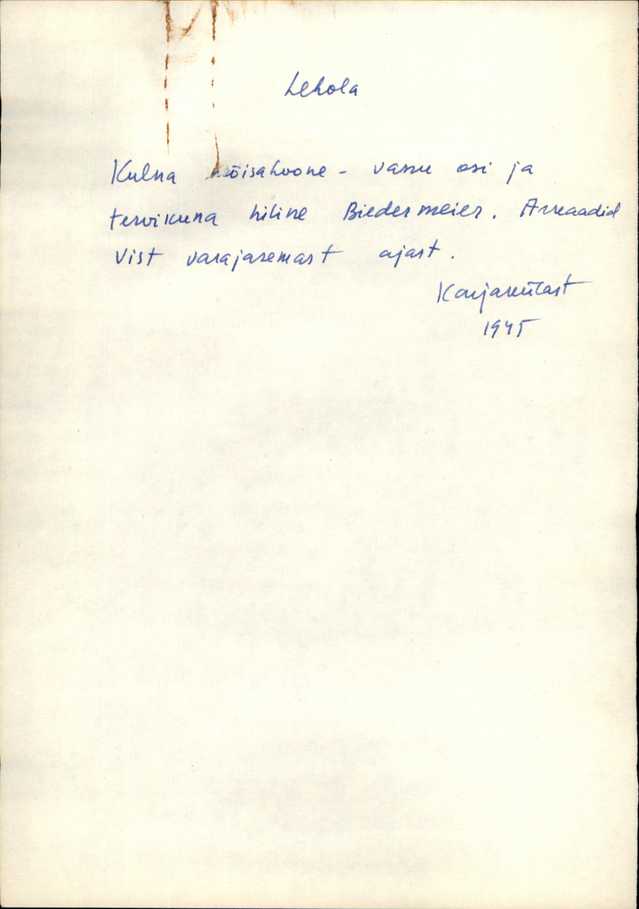 Lehola
Kulna mõisahoone - vasak osi ja
tervikuna hiline Biedermeier. Arkaadid
vist varajasemast ajast.
Karjaküla st
1945